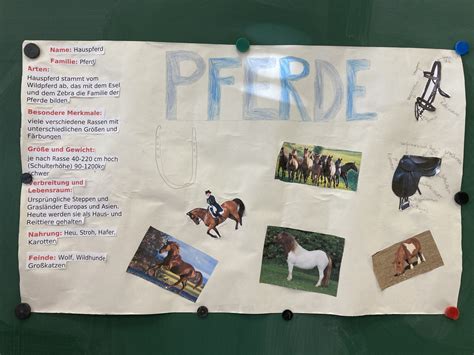 PFERDE
Name: Hauspferd
Familie: Pferd
Arten:
Hauspferd stammt vom
Wildpferd ab, das mit dem Esel
und dem Zebra die Familie der
Pferde bilden.
Besondere Merkmale:
viele verschiedene Rassen mit
unterschiedlichen Größen und
Färbungen.
Größe und Gewicht:
je nach Rasse 40-220 cm hoch
(Schulterhöhe) 90-1200kg
schwer
Verbreitung und
Lebensraum:
Ursprüngliche Steppen und
Grasländer Europas und Asien.
Heute werden sie als Haus- und
Reittiere gehalten
Nahrung: Heu, Stroh, Hafer,
Karotten
Feinde: Wolf, Wildhunde
Großkatzen